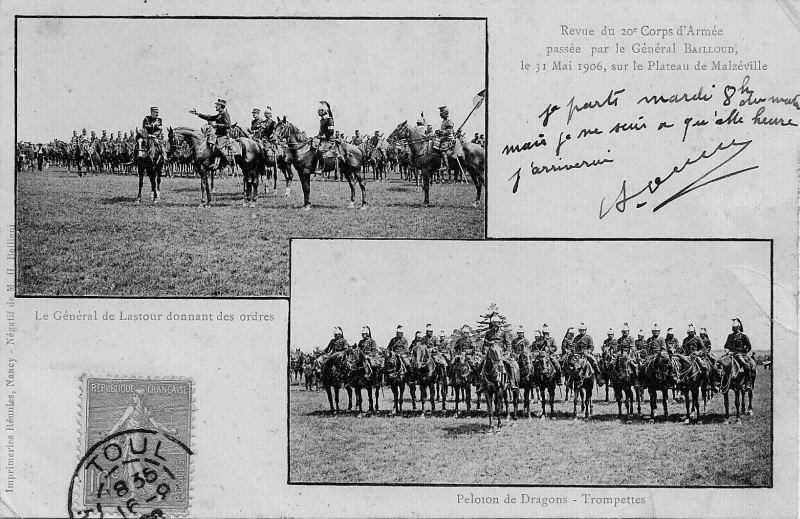 Revue du 20e Corps d'Armée
passée par le Général BAILLOUD,
le 31 Mai 1906, sur le Plateau de Malzéville
je parts mardi 8h du mat
mais je ne seis a qu'elle heure
j'arriverai
Le Général de Lastour donnant des ordres
Imprimeries Réunies, Nancy - Négatif de M. H. Bellieni
REPUBLIQUE FRANÇAISE
TOUL
Peloton de Dragons - Trompettes